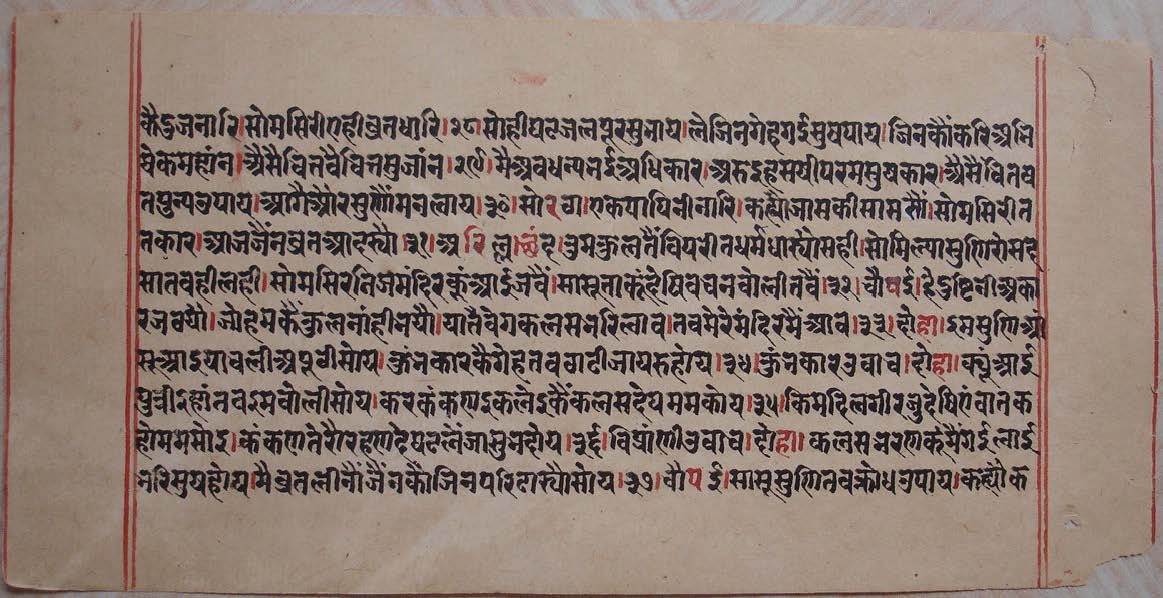 कैदुजनारि।सोमसिरीतहीव्रतधारि।२८।सोहीघटजलपुरसुभाय।लेजिनगेहगईसुषपाय।जिनकौंकरिअभि
षेकमहांन।अैसैचिंतवैचितसुजांन।२९।मैअबधन्यभईअधिकार।अरुइहसमयीपरमसुषकार।अैसैंचितष
तपुन्यउपाय।आगैऔरसुणौंमनलाय।३०।सोरठा।एकपापिनीनारि।कह्यौजामकीसामसौं।सोमसिरीत
तकार।आजजैंनव्रतआदस्यौ।३१।अरिल्ल।छंद।तुमकुलतैंविपरीतधर्मधास्यौसही।सोमिल्यासुणिएम
सातबहीलही।सोमसिरनिजमंदिरकूंआईजवैं।सासूताकूंद्वेषिवचनबोलीतवैं।३२।चौपई।हेदुष्टिनीअका
रजवयौ।जोहमकैंकुलनांहीभयौ।यातैंवेगकलसभरिलाव।तबमेरेमंदिरमैंआव।३३।दोहा।इमसुणिआं
सूआइयावलीअपुवीसोय।कुंभकारकैगेहतबबाटीजायरुहोय।३४।कुंभकारउवाच।दोहा।क्यूंआई
पुत्रीइहांतबइमबोलीसोय।करकंकणइकलेइकैंकलसदेयममकोय।३५।किमदिलगीरजुदेषिएंवातक
होममसोइ।कंकणतेरौरहणदेघटलेजासुभहोय।३६।विप्रांणीउवाच।दोहा।कलसभरणकूंमैंगईलाई
भरिसुयहोय।मैव्रतलीनौंजैंनकौजिनघरिदास्यौसोय।३७।चौपई।सासूसुणितबक्रोधउपाय।कह्यौक